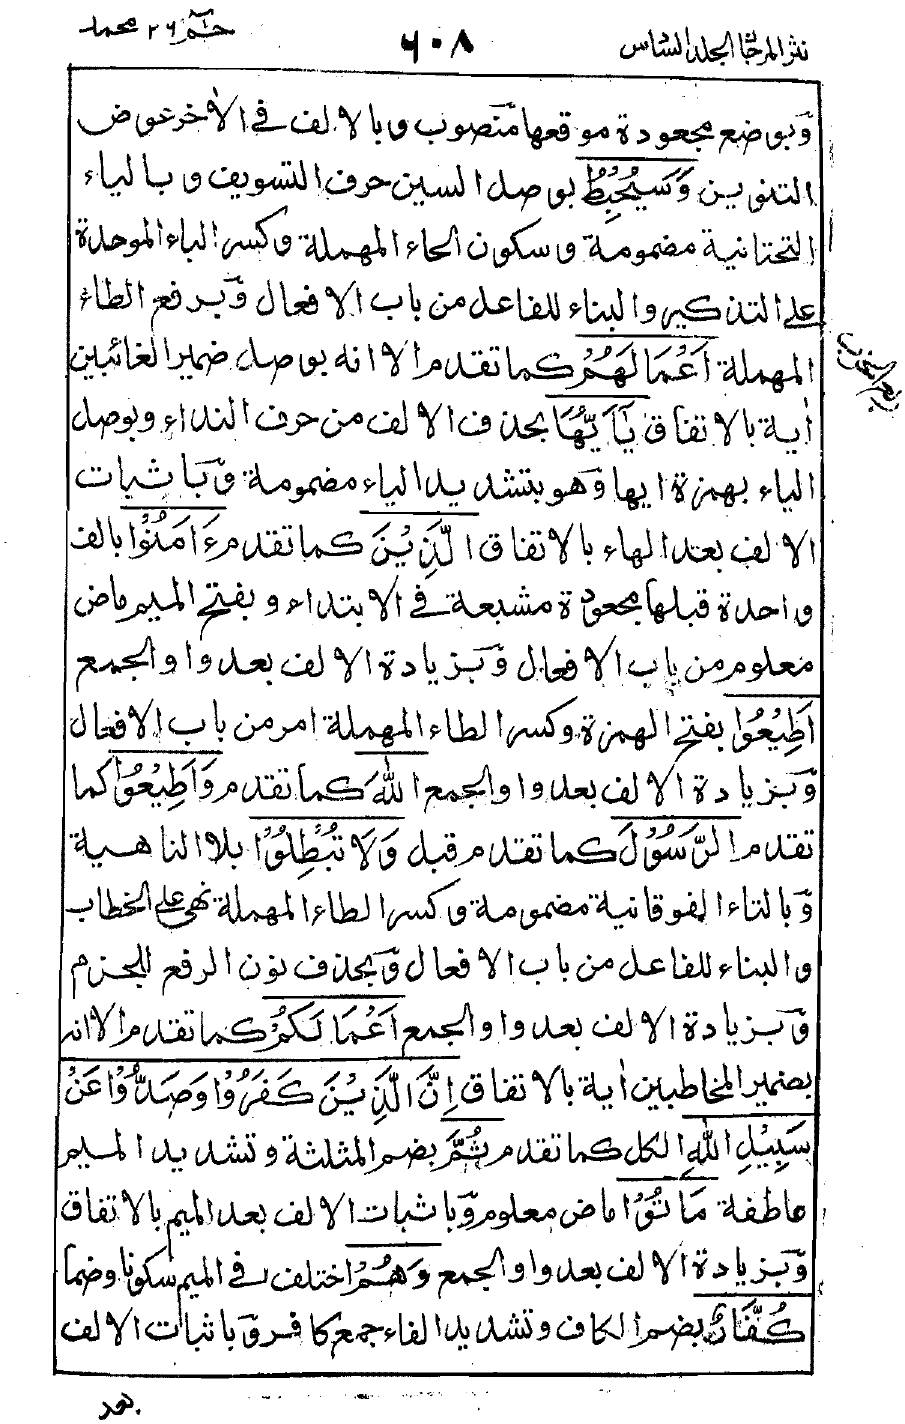 نثر المرجان المجلد السادس
٦٠٨
حٰمٓ ٢٦ محمد
وبوضع مجعودة موقعها منصوب وبالالف في الاخر عوض
التنوين وَسَيُحْبِطُ بوصل السين حرف التسويف وبالياء
التحتانية مضمومة وسكون الحاء المهملة وكسر الباء الموحدة
على التذكير والبناء للفاعل من باب الافعال وبرفع الطاء
المهملة اَعْمَالَهُمْ كما تقدم الا انه بوصل ضمير الغائبين
اٰية بالاتفاق يٰٓاَيُّهَا بحذف الالف من حرف النداء وبوصل
الياء بهمزة ايها وهو بتشديد الياء مضمومة وباثبات
الالف بعد الهاء بالاتفاق الَّذِيْنَ كما تقدم ءَامَنُوْا بالف
واحدة قبلها مجعودة مشبعة في الابتداء وبفتح الميم ماض
معلوم من باب الافعال وبزيادة الالف بعد واو الجمع
اَطِيْعُوا بفتح الهمزة وكسر الطاء المهملة امر من باب الافعال
وبزيادة الالف بعد واو الجمع اللّٰهَ كما تقدم وَاَطِيْعُوا كما
تقدم الرَّسُوْلَ كما تقدم قبل وَلَا تُبْطِلُوْا بلا الناهية
وبالتاء الفوقانية مضمومة وكسر الطاء المهملة نهى على الخطاب
والبناء للفاعل من باب الافعال وبحذف نون الرفع للجزم
وبزيادة الالف بعد واو الجمع اَعْمَالَكُمْ كما تقدم الا انه
بضمير المخاطبين اٰية بالاتفاق اِنَّ الَّذِيْنَ كَفَرُوْا وَصَدُّوْا عَنْ
سَبِيْلِ اللّٰهِ الكل كما تقدم ثُمَّ بضم المثلثة وتشديد الميم
عاطفة مَاتُوْا ماض معلوم وباثبات الالف بعد الميم بالاتفاق
وبزيادة الالف بعد واو الجمع وَهُمْ اختلف في الميم سكونا وضما
كُفَّارٌ بضم الكاف وتشديد الفاء جمع كافر وباثبات الالف
بعد